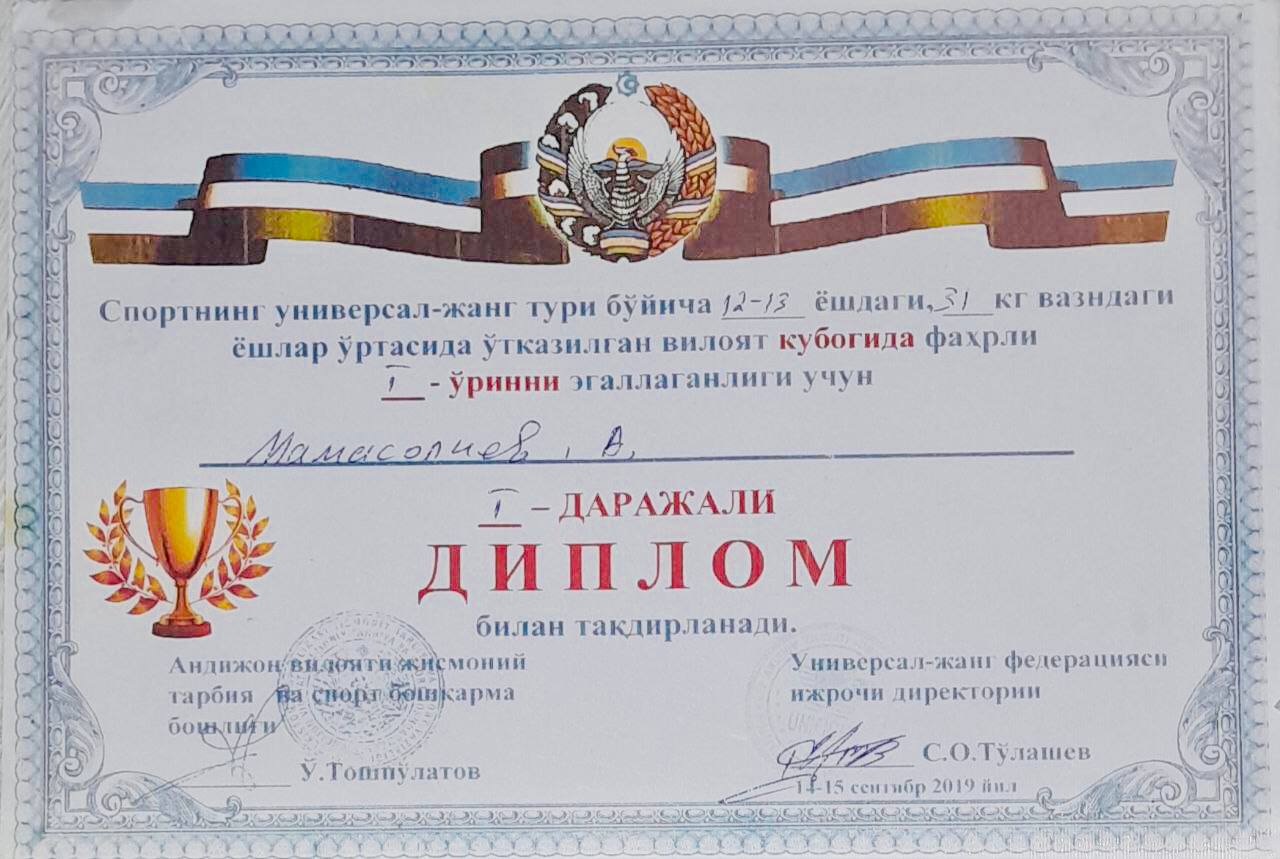 Спортнинг универсал-жанг тури бўйича 12-13 ёшдаги, 31 кг вазндаги
ёшлар ўртасида ўтказилган вилоят кубогида фахрли
I - ўринни эгаллаганлиги учун
Мамасолиев, А.
I – ДАРАЖАЛИ
ДИПЛОМ
билан тақдирланади.
Андижон вилояти жисмоний
тарбия ва спорт бошқарма
бошлиғи
Ў.Тошпўлатов
Универсал-жанг федерацияси
ижрочи директории
С.О.Тўлашев
14-15 сентябр 2019 йил